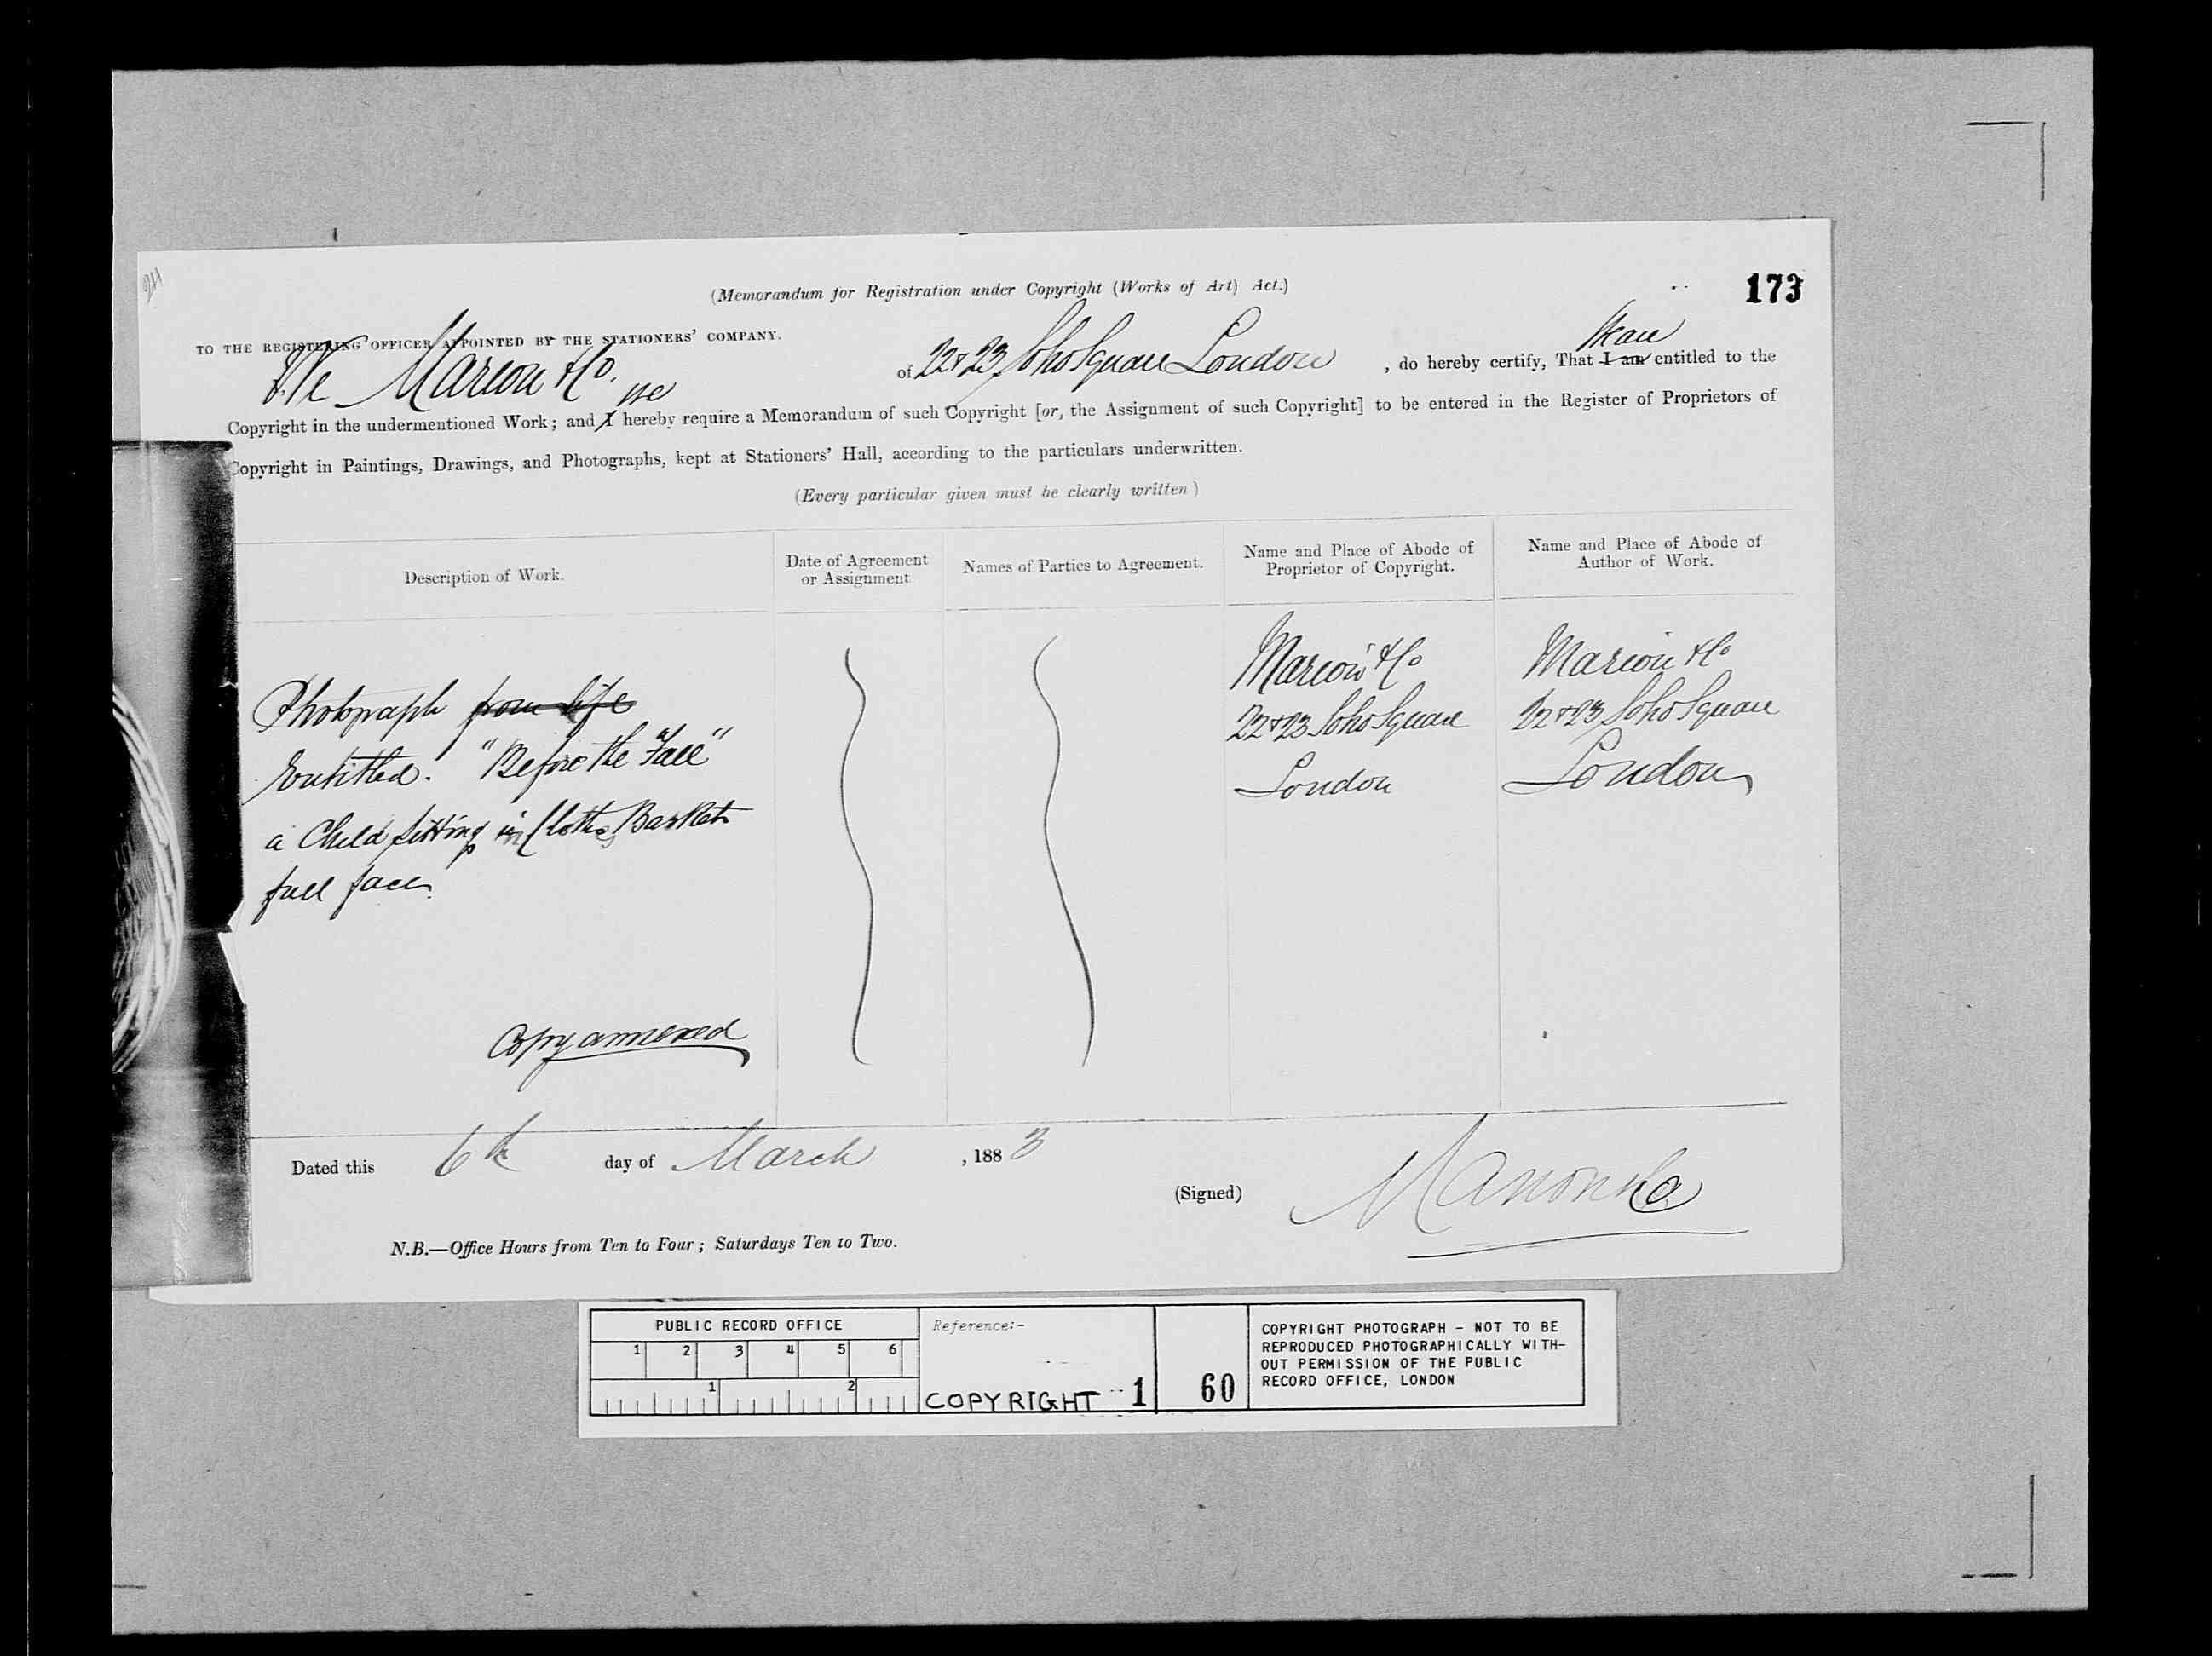 (Memorandum for Registration under Copyright (Works of Art) Act.)
173
TO THE REGISTERING OFFICER APPOINTED BY THE STATIONERS' COMPANY.
We Marion & Co. of 22 & 23 Soho Square London, do hereby certify, That I am We are entitled to the
Copyright in the undermentioned Work; and I we hereby require a Memorandum of such Copyright [or, the Assignment of such Copyright] to be entered in the Register of Proprietors of
Copyright in Paintings, Drawings, and Photographs, kept at Stationers' Hall, according to the particulars underwritten.
(Every particular given must be clearly written)
Description of Work.
Date of Agreement
or Assignment
Names of Parties to Agreement.
Name and Place of Abode of
Proprietor of Copyright.
Name and Place of Abode of
Author of Work.
Photograph from life
Entitled. "Before the "Fall"
a Child sitting in Cloths Basket
full face.
Copy annexed
Marion & Co
22 & 23 Soho Square
London
Marion & Co
22 & 23 Soho Square
London
Dated this 6th day of March, 1883
(Signed) Marion & Co
N.B.—Office Hours from Ten to Four; Saturdays Ten to Two.
PUBLIC RECORD OFFICE
1 2 3 4 5 6
1 2
Reference:-
COPYRIGHT 1
60
COPYRIGHT PHOTOGRAPH - NOT TO BE
REPRODUCED PHOTOGRAPHICALLY WITH-
OUT PERMISSION OF THE PUBLIC
RECORD OFFICE, LONDON